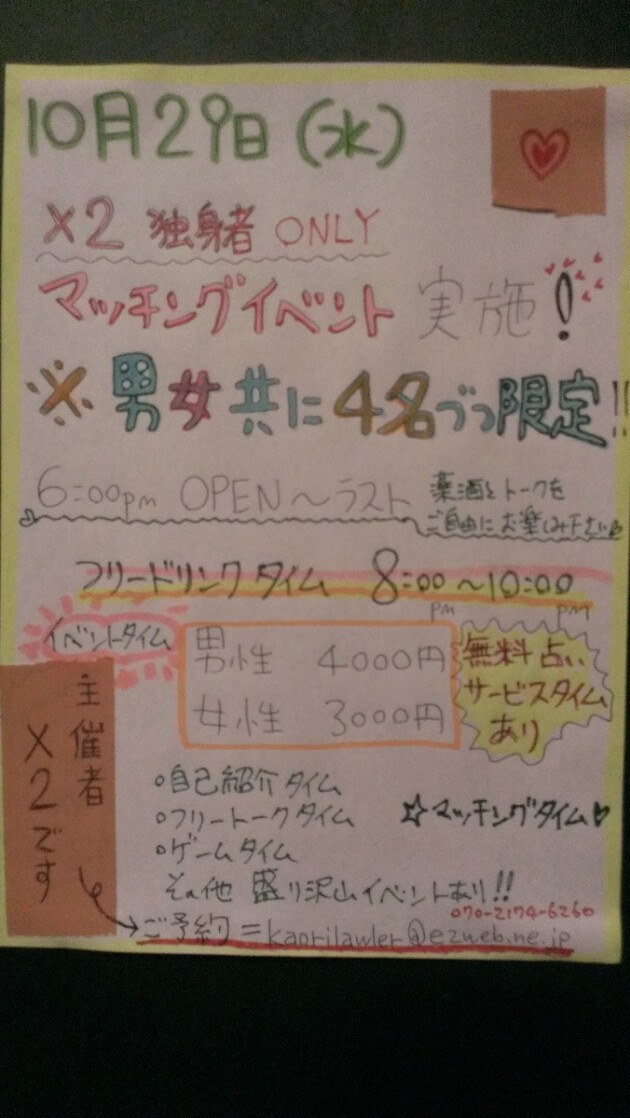 10月29日(水)
×2 独身者 ONLY
マッチングイベント 実施!
※ 男女共に4名づつ限定!!
6:00pm OPEN〜ラスト
薬酒とトークを
ご自由にお楽しみ下さい
フリードリンクタイム 8:00pm〜10:00pm
イベントタイム
男性 4000円
女性 3000円
無料占い
サービスタイム
あり
主催者
×2です
○自己紹介タイム
○フリートークタイム
☆マッチングタイム♥
○ゲームタイム
その他 盛り沢山イベントあり!!
070-2174-6260
ご予約=kaorilawler@ezweb.ne.jp